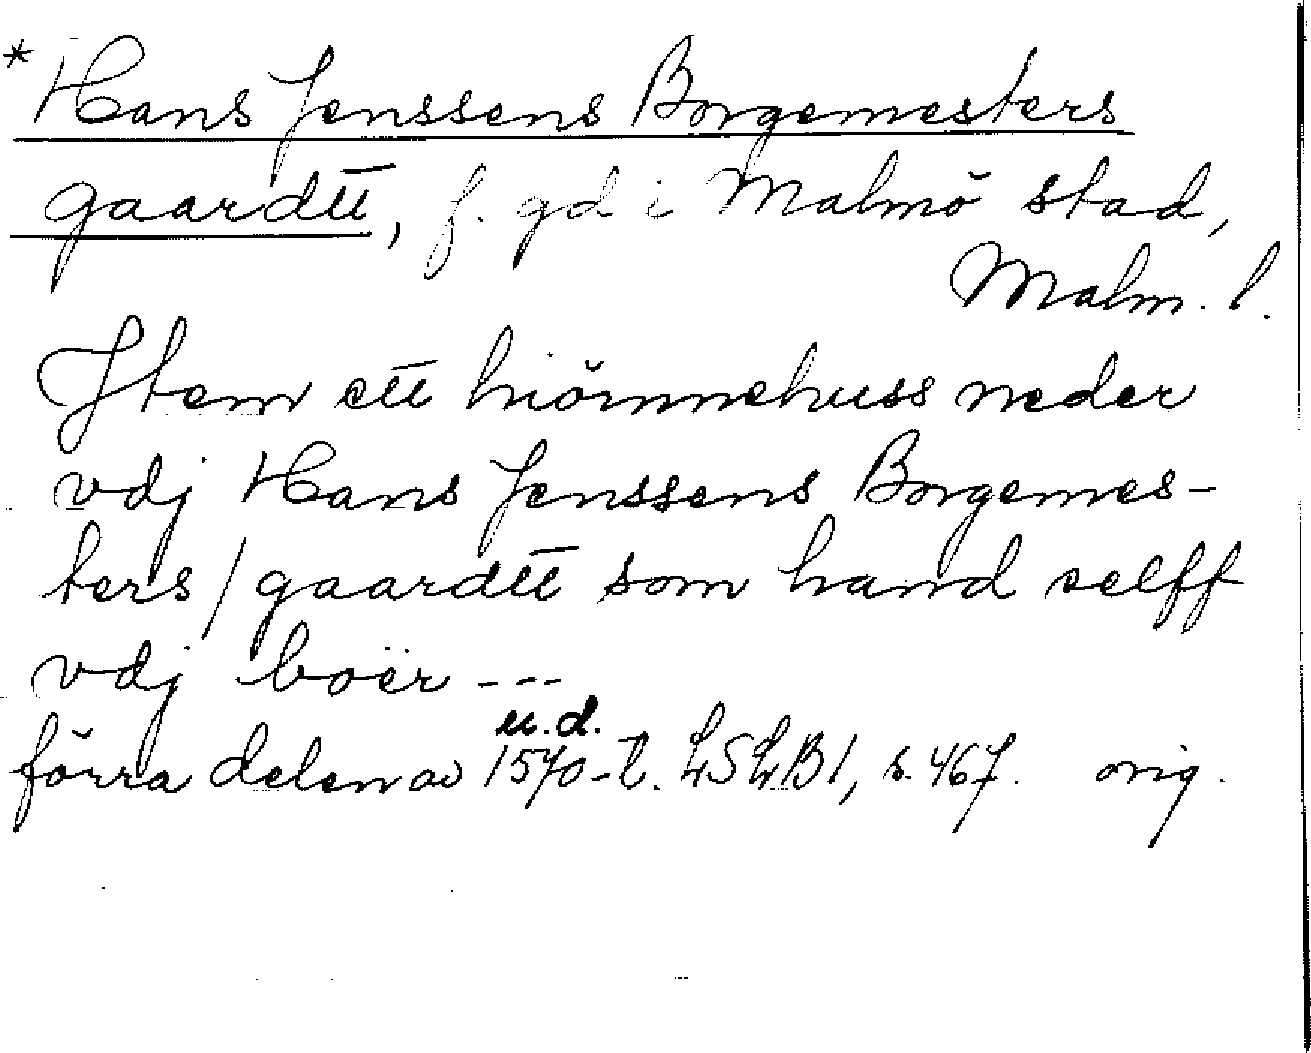 *Hans Jenssens Borgemesters
gaardtt, f. gd i Malmö stad,
Malm. l.
Jtem ett hiörnnehuss neder
vdj Hans Jenssens Borgemes-
ters/gaardtt som hand selff
vdj boër ---
u.d.
förra delen av 1570-t. LSLB1, s. 467. orig.